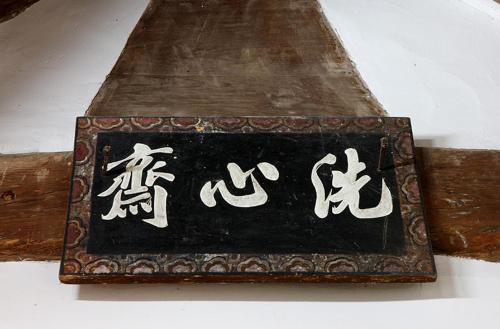 洗心齋